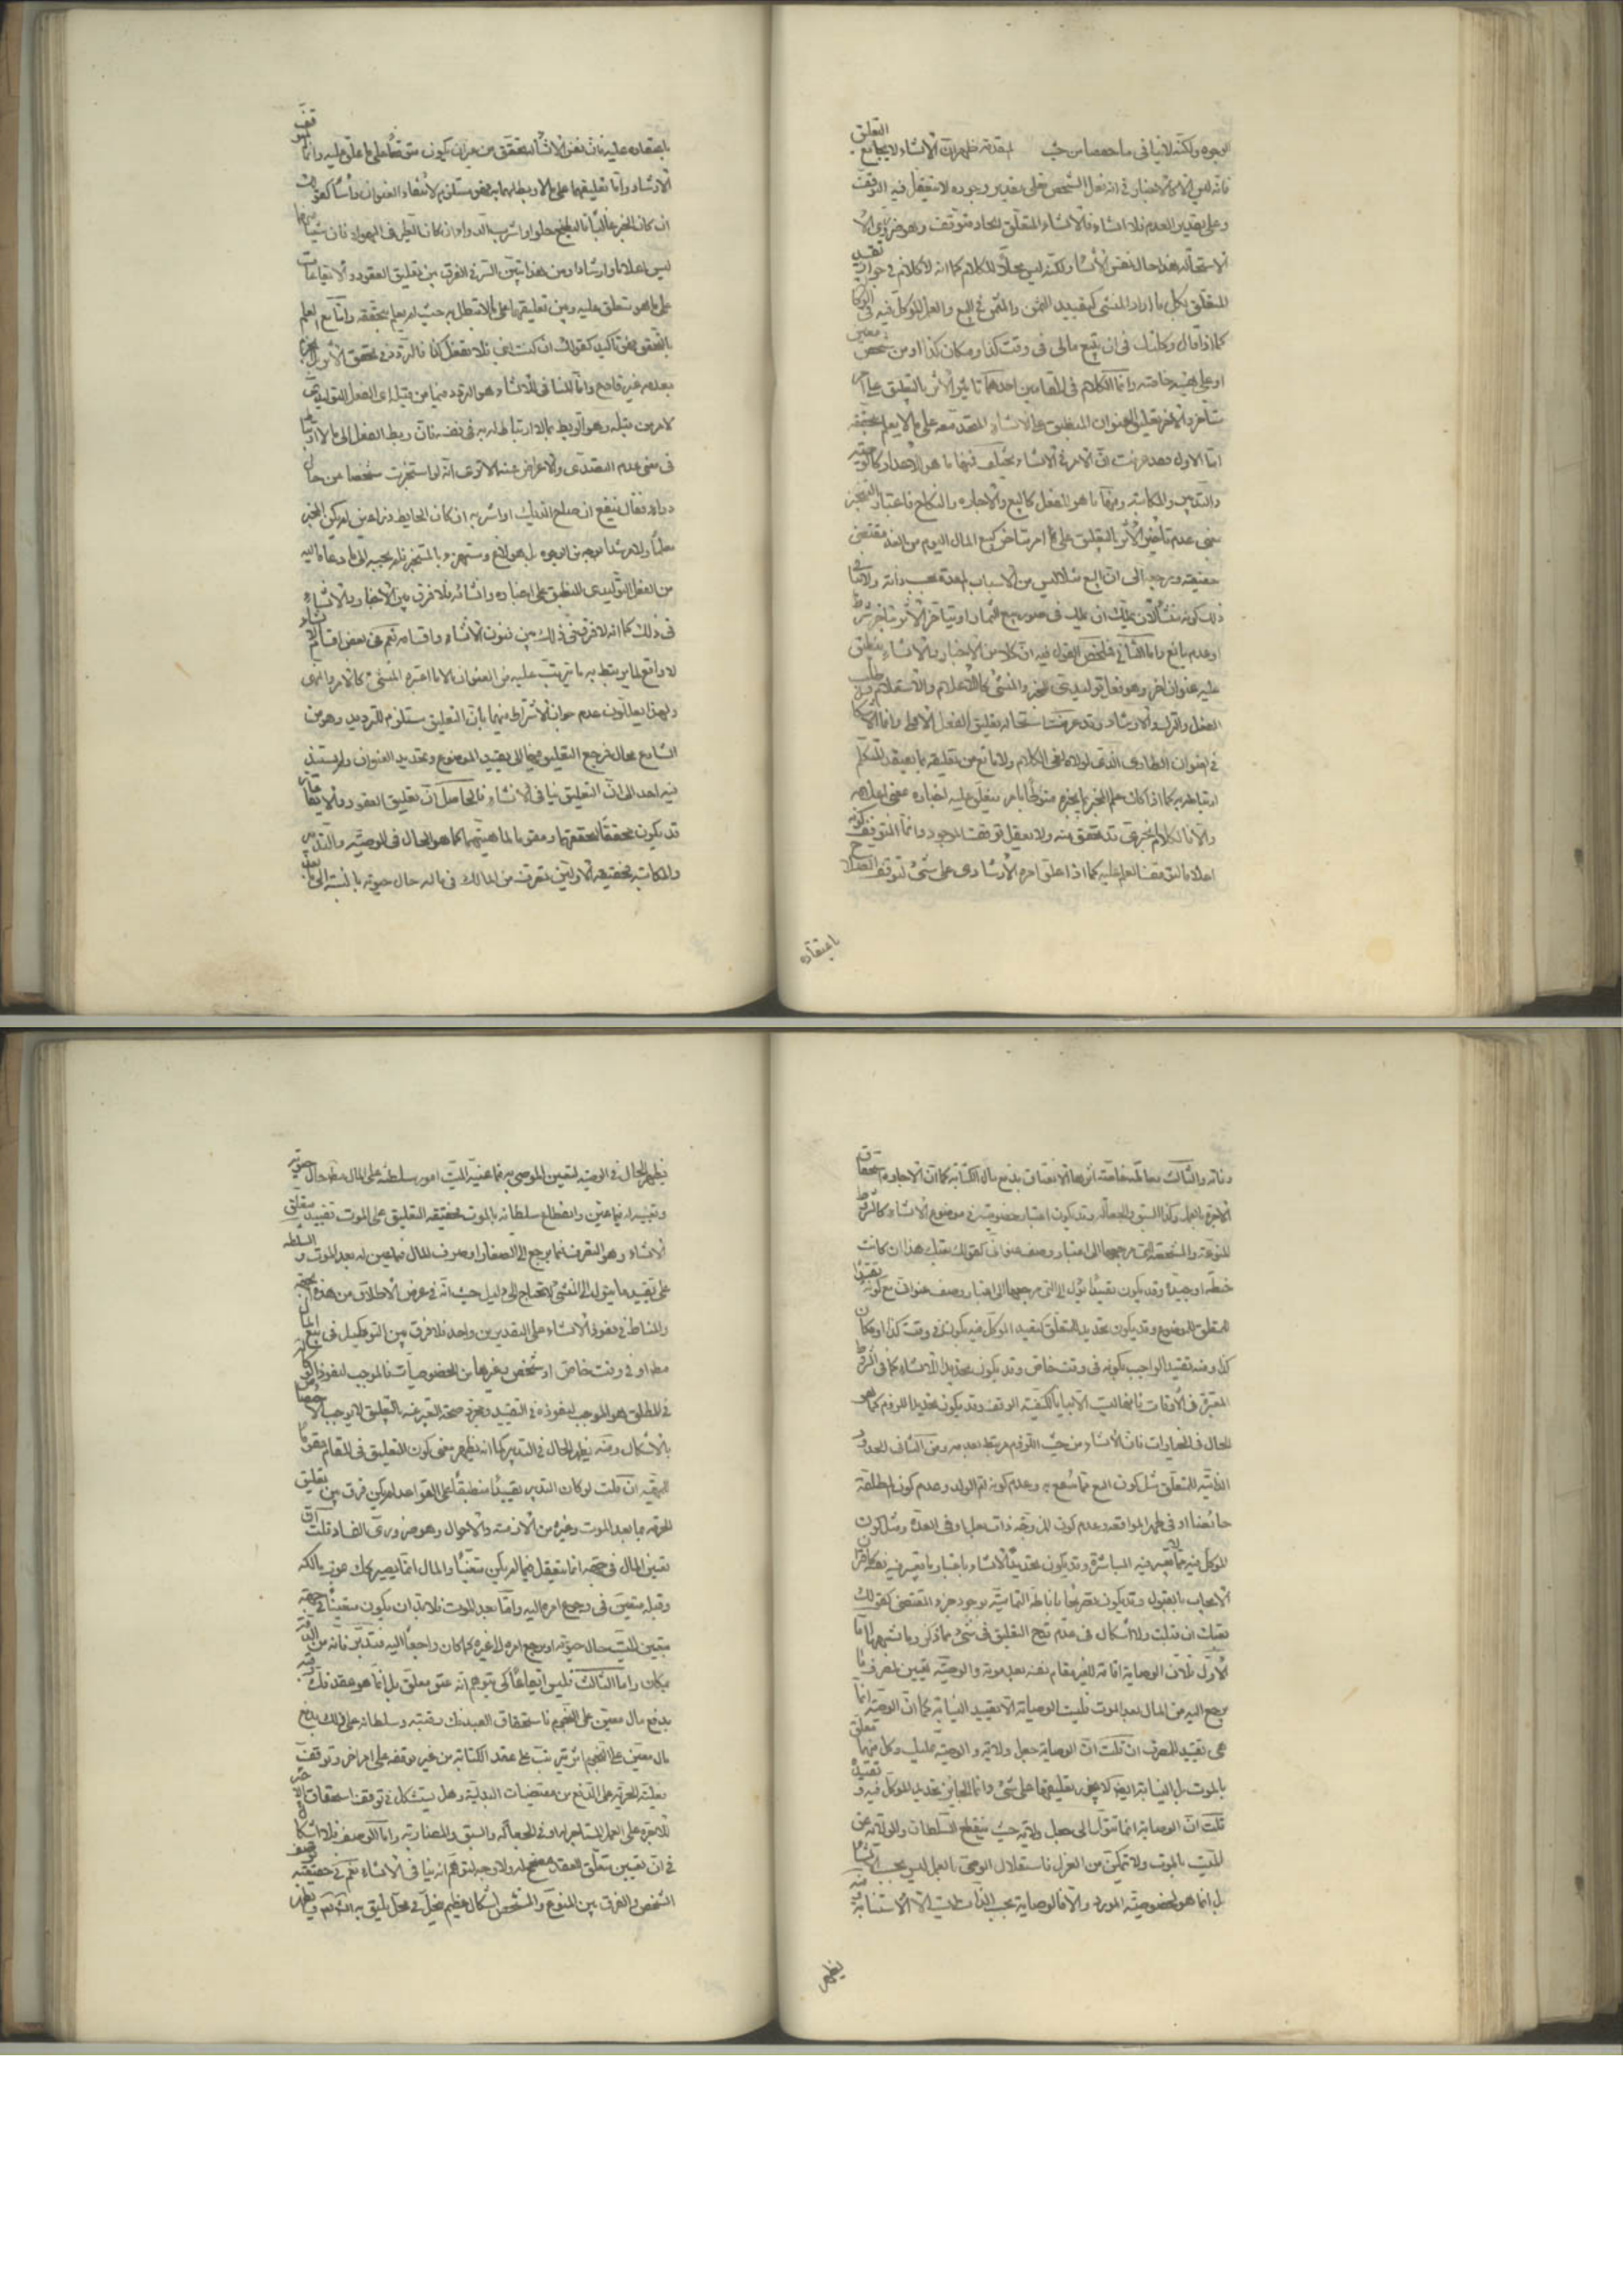 الوجوه ولكنه لا ينافي ما حصصا من حيث المقدمة ظهر ان الانشاء لا يجامع التعليق
فانه الاخبار في انه فعل الشخص فعلى تقدير وجوده لا يتعقل فيه التوقف
وعلى تقدير العدم فلا انشاء فالانشاء المتعلق الحادث متوقف وهو ضروري
الاستحالة هذا حال نفس الانشاء ولكنه ليس محلا للكلام كما انه لا كلام في جواز تقييد
المتعلق بكل ما اراد المنشئ كتقييد الثمن والمثمن في البيع والعمل الموكل فيه في الوكالة
كما اذا قال وكلتك في ان تبيع مالي في وقت كذا ومكان كذا او من شخص معين
او على هيئة خاصة وانما الكلام في المقامين احدهما تاثير الاثر بالتعليق على امر
متاخر والاخر تعليق العنوان المنطبق على الانشاء المتحد معه على ما لا يعلم تحققه
اما الاول فقد عرفت ان الامر في الانشاء يختلف فمنها ما هو الاعداد كالوصية
والتدبير والمكاتبة ومنها ما هو الفعل كالبيع والاجارة والنكاح فاعتبار التنجيز
بمعنى عدم تاخير الاثر بالتعليق على امر متاخر كبيع المال اليوم من الغد مقتضى
حقيقته ومرجعه الى ان البيع مثلا ليس من الاسباب المعدة بحسب ذاته ولا ينافي
ذلك كونه منشأ لان يملك ان يملك في صورة بيع الثمار او تاخر الاثر بتاخر شرط
او عدم مانع واما الثاني فملخص القول فيه ان كلا من الاخبار والانشاء ينطبق
عليه عنوان اخر وهو فعل توليدي للمخبر والمنشئ كالاعلام والاستعلام وطلب
الفعل والترك والارشاد وقد عرفت استحالة تعليق الفعل الاخبار وانما الاشكال
في العنوان الطاري الذي لولاه لغى الكلام ولا مانع من تعليقه بما يعتقد المتكلم
ارتباطه به كما اذا كان علم المخبر بما يخبره منوطا بامر فيعلق عليه اخباره بمعنى اعلامه
والا فالكلام الخبري قد تحقق منه ولا يعقل توقف الموجود وانما المتوقف كونه
اعلاما لتوقف العلم عليه كما اذا علق امره الارشادي على شيء لتوقف الصلاح
باعتقاده
باعتقاده عليه فان نفس الانشاء المتحقق من دون ان يكون متوقفا على ما علق عليه وانما المتوقف
الارشاد واما تعليقهما على ما لا ربط لهما به فهو مستلزم لانتفاء العنوان رأسا كقولك
ان كان الخبر غائبا فالبطيخ حلو او اشرب الدواء ان كان الطير في الهواء فان شيئا منهما
ليس اعلاما وارشادا ومن هذا تبين السر في الفرق بين تعليق العقود والايقاعات
على ما هو متعلق عليه وبين تعليقها على ما لا تبطل به حيث لم يعلم تحققه واما مع العلم
بالتحقق فهو تاكيد كقولك ان كنت ابني فلا تفعل كذا فالتردد في تحقق الاول
بعدمه غير قادح وانما المنافي للانشاء هو التردد فيما من قبله اي الفعل التوليدي
لا من قبله وهو الربط بما لا ارتباط له به في نفسه فان ربط الفعل الى ما لا ارتباط
في معنى عدم التصدي والاعراض عنه الا ترى انه لو استخبرت شخصا من حال
دواء فقال ينفع ان صاح الديك او اشربه ان كان الحايط ذراعين لم يكن المخبر
معلما ولا مرشدا بوجه من الوجوه بل هو لاغ ومستهزء بالمستخبر فلم يجبه الى ما دعاه اليه
من الفعل التوليدي المنطبق على اخباره وانشائه فلا فرق بين الاخبار والانشاء
في ذلك كما انه لا فرق في ذلك بين فنون الانشاء واقسامه نعم في بعض اقسام الانشاء
لا واقع لما يرتبط به ما يترتب عليه من العنوان الا ما اعتبره المنشئ كالامر والنهي
ولهذا يعللون عدم جواز الاشتراط فيها بان التعليق مستلزم للترديد وهو من
الشارع محال فرجع التعليق فيها الى تقييد الموضوع وتحديد العنوان ولم يستند
فيه احد الى ان التعليق ينافي الانشاء فالحاصل ان تعليق العقود والايقاعات
قد يكون محققا لحقيقتها ومقوما لماهيتها كما هو الحال في الوصية والتدبير
والمكاتبة فحقيقة الاولين تصرف من المالك في ماله حال حيوته بالنسبة الى ما بعد
وفاته والثالث معاملة خاصة اثرها الانعتاق بدفع مال الكتابة كما ان الاجارة استحقاق
الاجرة بالعمل وكذا السبق والجعالة وقد يكون اعتبار خصوصية في موضوع الانشاء كالشرط
المنوعة والمشخصة التي مرجعها الى اعتبار وصف عنواني كقولك بعتك هذا ان كانت
حنطة او جيدة وقد يكون تقييدا يؤل الى التي مرجعها الى اعتبار وصف عنواني مع كونه تقييدا
للمتعلق الموضوع وقد يكون تحديد المتعلق كتقييد الموكل فيه بكونه في وقت كذا او مكان
كذا ومنه تقييد الواجب بكونه في وقت خاص وقد يكون تحديدا للانشاء كما في الشرط
المعتبرة في الاوقاف فانها ليست الا بيانا لكيفية الوقف وقد يكون تحديدا للزوم كما هو
الحال في الخيارات فان الانشاء من حيث اللزوم مرتبط بعدمه ومن الشاف الحدود
الذاتية للمتعلق مثل كون البيع مما يسمع به وعدم كونه ام الولد وعدم كون المطلقة
حائضا او في طهر المواقعة وعدم كون الزوجة ذات بعل او في العدة ومثل كون
الموكل فيه مما لا يعتبر فيه المباشرة وقد يكون تحديدا للانشاء باعتبار ما يعتبر فيه كاقتران
الايجاب بالقبول وقد يكون تصريحا باناطة التمامية بوجود جزء المقتضي كقولك
بعتك ان قبلت ولا اشكال في عدم قدح التعليق في شيء مما ذكر وما شبهها اما
الاول فلان الوصاية اقامة للغير مقام نفسه بعد موته والوصية تعيين لمصرف ما
يرجع اليه من المال بعد الموت فليست الوصاية الا تقييد النيابة كما ان الوصية انما
هي تقييد للمصرف ان قلت ان الوصاية جعل ولاية والوصية تمليك وكل منهما معلق
بالموت بل النيابة ايضا لا يجوز تعليقها على شيء وانما الجائز تحديد الموكل فيه وتقييده
قلت ان الوصاية انما تؤل الى جعل ولاية حيث ينقطع السلطان والولاية عن
الميت بالموت ولا يتمكن من العزل فاستقلال الوصي بالعمل ليس بحسب انشائه
بل انما هو لخصوصية المورد والا فالوصاية بحسب الذات ليست الا الاستنابة ومنه
يظهر
يظهر الحال في الوصية لتعين الموصى به فما عينه الميت امور سلطنة على المال مطلقا حال حيوته
وتعيينه له نافذ عين وانقطاع سلطانه بالموت فحقيقة التعليق على الموت تقييد متعلق
الانشاء وهو التصرف فيما يرجع الى الصغار او صرف المال فيما عين له بعد الموت والسلطنة
على تقييد ما يتولد الى المنشئ لا تحتاج الى دليل حيث انه في عرض الاطلاق من هذه الجهة
والمناط في نفوذ الانشاء على التقديرين واحد فلا فرق بين التوكيل في بيع المال
مطلقا او في وقت خاص او شخص وغيرها من الخصوصيات فالموجب لنفوذ الوكالة
في المطلق هو الموجب لنفوذه في التقييد ومجرد صحة التعبير عنه بالتعليق لا يوجب اختصاصا
بالاشكال ومنه يظهر الحال في التدبير كما انه يظهر معنى كون التعليق في المقام مقوما
للهيئة ان قلت لو كان التدبير تقييدا منطبقا على القواعد لم يكن فرق بين تعليق
الحرية بما بعد الموت وغيره من الازمنة والاحوال وهو ضروري الفساد قلت ان
تعين المال في جهة انما يتعقل فيما لم يكن متعينا والمال انما يصير كك بموت مالكه
وقبله متعين في رجوع امره اليه واما بعد الموت فلا بد ان يكون متعينا في جهة
بتعيين الميت حال حيوته او يرجع امره الى غيره كما كان راجعا اليه فتدبر فانه من الدقة
بمكان واما الثالث فليس ايقاعا كي يتوهم انه عتق معلق بل انما هو عقد فك رقبة
بدفع مال معين على النجوم فاستحقاق العبد فك رقبته وسلطانه على ذلك بدفع
مال معين على النجوم اثر يترتب على عقد الكتابة من غير توقفه على امر اخر وتوقف
فعلية الحرية على الدفع من مقتضيات البدلية وهل يستشكل في توقف استحقاق الاجير
للاجرة على العمل المستاجر له او في الجعالة والسبق والمضاربة واما الوصف فلا اشكال
في ان تعيين متعلق العقد مصحح له ولا وجه لتوهم انه ينافي الانشاء نعم في حقيقة
الشخص والفرق بين المنوع والمشخص اشكال عظيم ينحل في محل يليق به الكلام ويظهر